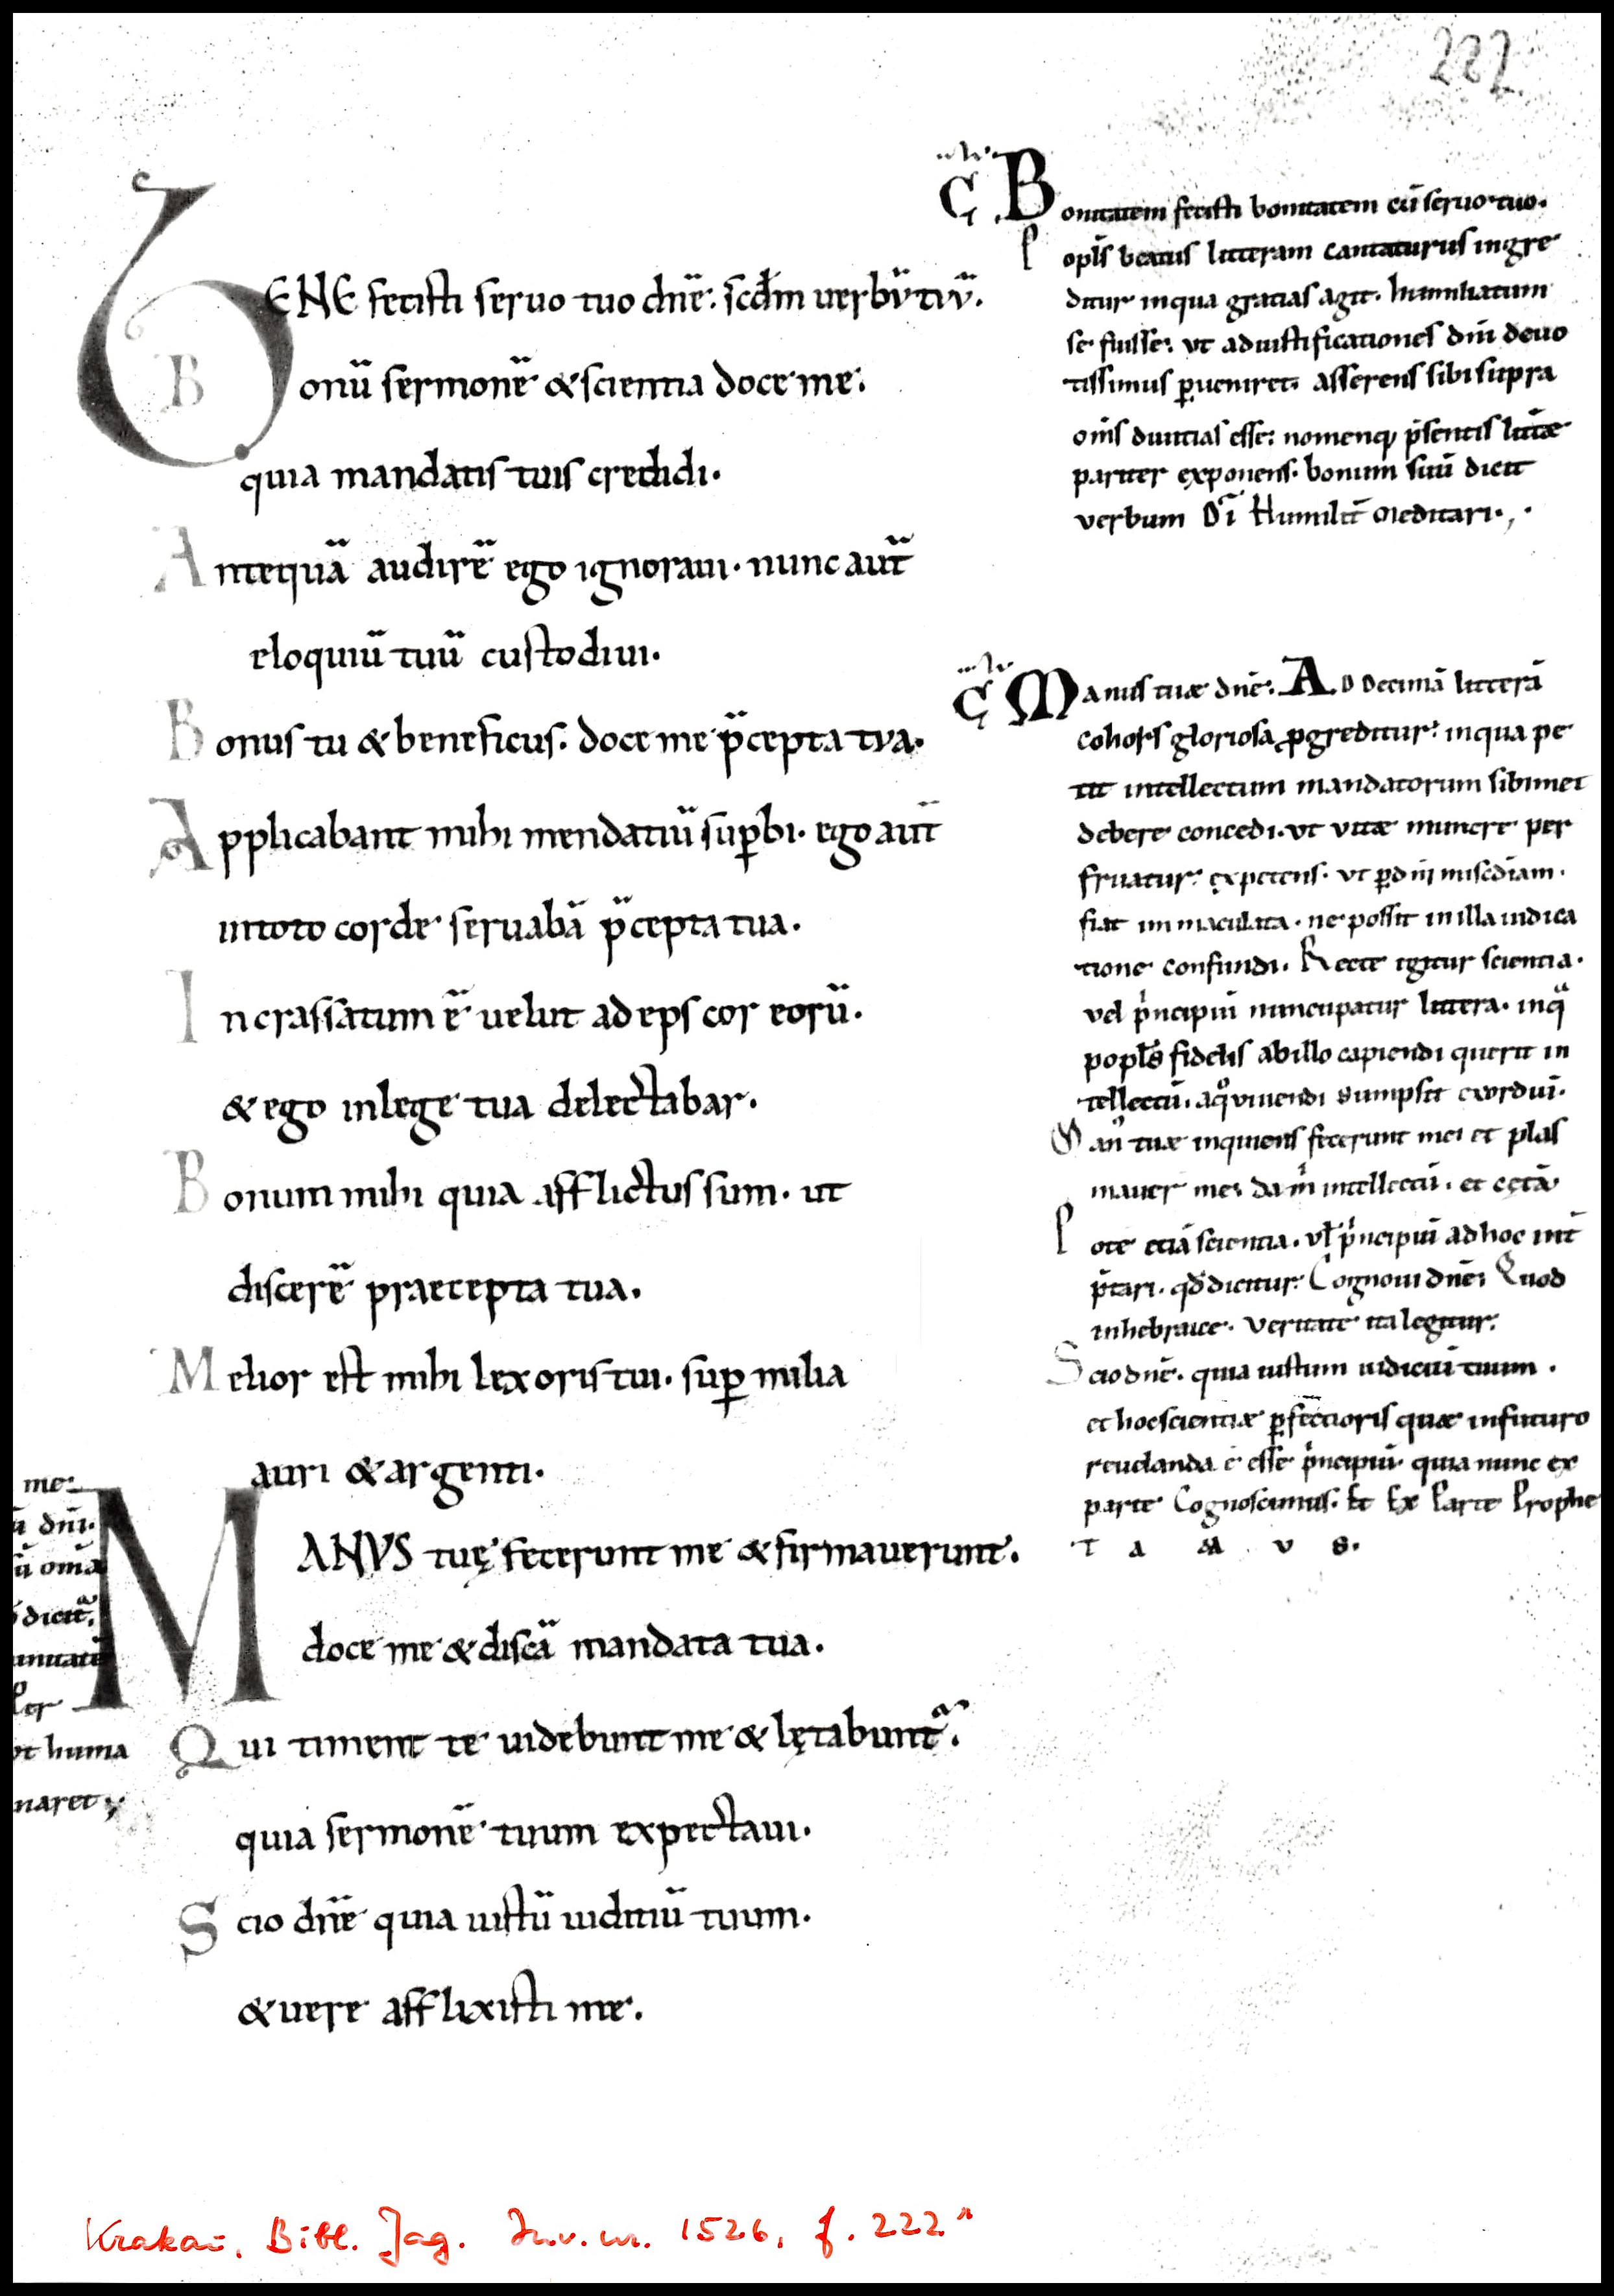 222
BENE fecisti seruo tuo dñe: scdm uerbū tuū.
B onū sermonē & scientia doce me:
quia mandatis tuis credidi.
Antequā audirē ego ignoraui. nunc aut̄
eloquiū tuū custodiui.
Bonus tu & beneficus. doce me p̄cepta tua.
Applicabant mihi mendatiū suꝑbi. ego aut̄
in toto corde seruabā p̄cepta tua.
Incrassatum ē uelut adeps cor eorū.
& ego in lege tua delectabar.
Bonum mihi quia afflictus sum. ut
discerē praecepta tua.
Melior est mihi lex oris tui. suꝑ milia
auri & argenti.
MANUS tuę fecerunt me & firmauerunt.
doce me & discā mandata tua.
Qui timent te uidebunt me & lętabunt̄.
quia sermonē tuum expectaui.
Scio dñe quia iustū iuditiū tuum.
& uere afflixisti me.
Bonitatem fecisti bonitatem cū seruo tuo.
P opl̄s beatus litteram cantaturus ingre
ditur in qua gratias agit. humiliatum
se fuisse: ut ad iustificationes dn̄i deuo
tissimus ꝑueniret; asserens sibi supra
om̄s diuitias esse: nomenq; p̄sentis litt̄æ
pariter exponens. bonum suū dicit
verbum Dī Humilit̄ Meditari.
Manus tuæ dn̄e: AD Decimā litterā
cohors gloriosa ꝓgreditur: in qua pe
tit intellectum mandatorum sibimet
debere concedi. ut vitæ munere per
fruatur: expetens. ut ꝑ dn̄i misc̄diam.
fiat immaculata. ne possit in illa iudica
tione confundi. Recte igitur scientia.
vel p̄ncipiū nuncupatur littera. in qͣ
popl̄s fidelis ab illo capiendi querit in
tellectū. a qͦ viuendi sumpsit exordiū.
Man̄ tuæ inquiens fecerunt me: et plas
mauer̄ me; da m̄ intellectū. et cętā.
Pote etiā scientia. vl̄ p̄ncipiū ad hoc int̄
p̄tari. qd̄ dicitur: Cognoui dn̄e: Quod
in hebraice. veritate ita legitur:
Scio dn̄e. quia iustum iudiciū tuum.
et hoc scientiæ ꝑfectioris quæ in futuro
reuelanda ē esse p̄ncipiū. quia nunc ex
parte Cognoscimus. Et Ex Parte Prophe
T a m u s.
me:
ū dn̄i.
ū om̄a
dicit̄.
Per
ut huma
naret;
Krakau, Bibl. Jag. Inv. nr. 1526, f. 222ʳ